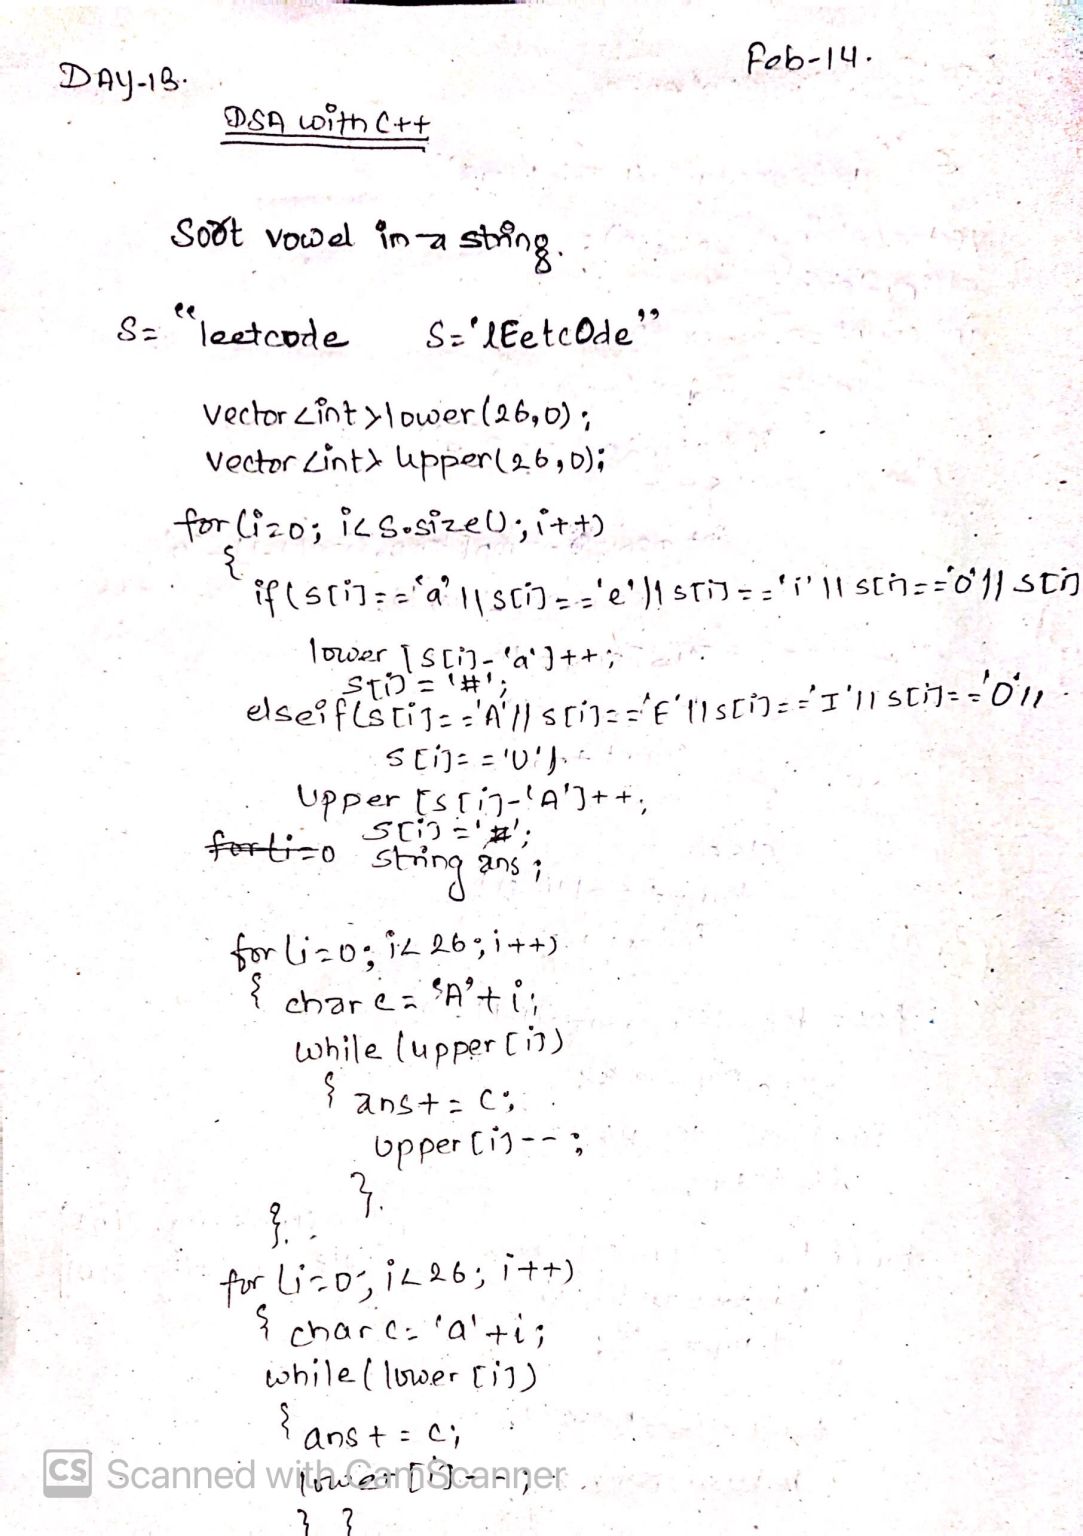 DAY-13.
Feb-14.
DSA with C++
Sort vowel in a string.
S= "leetcode S='lEetcOde"
vector<int>lower(26,0);
vector<int> Upper(26,0);
for(i=0; i<S.size();i++)
{
if(s[i]=='a'||s[i]=='e'||s[i]=='i'||s[i]=='o'|| s[i]
lower[s[i]-'a']++;
s[i]='#';
elseif(s[i]=='A'||s[i]=='E'||s[i]=='I'||s[i]=='O'||
s[i]=='U').
Upper[s[i]-'A']++;
s[i]='#';
for(i=0 string ans;
for(i=0;i<26;i++)
{ char c='A'+i;
while(upper[i])
{ ans+=c;
upper[i]--;
}.
}.
for(i=0;i<26;i++)
{ char c='a'+i;
while(lower[i])
{ ans+=c;
CS Scanned with CamScanner
lower[i]--;
} }